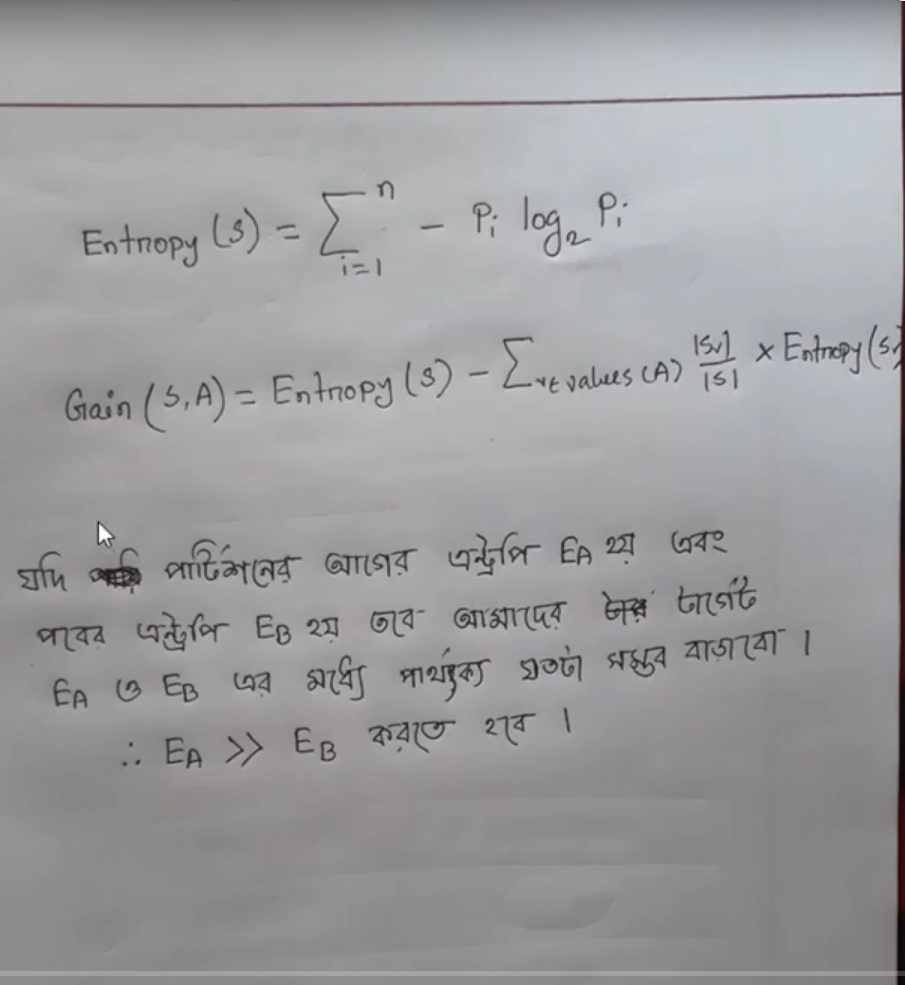 Entropy (S) = ∑ᵢ₌₁ⁿ - Pᵢ log₂ Pᵢ
Gain (S, A) = Entropy (S) - ∑ᵥ∈values(A) |Sv|/|S| × Entropy (Sv
যদি পার্টিশনের আগের এন্ট্রপি EA হয় এবং
পরের এন্ট্রপি EB হয় তবে আমাদের টার্গেট
EA ও EB এর মধ্যে পার্থক্য যতটা সম্ভব বাড়াবো ।
∴ EA >> EB করতে হবে ।